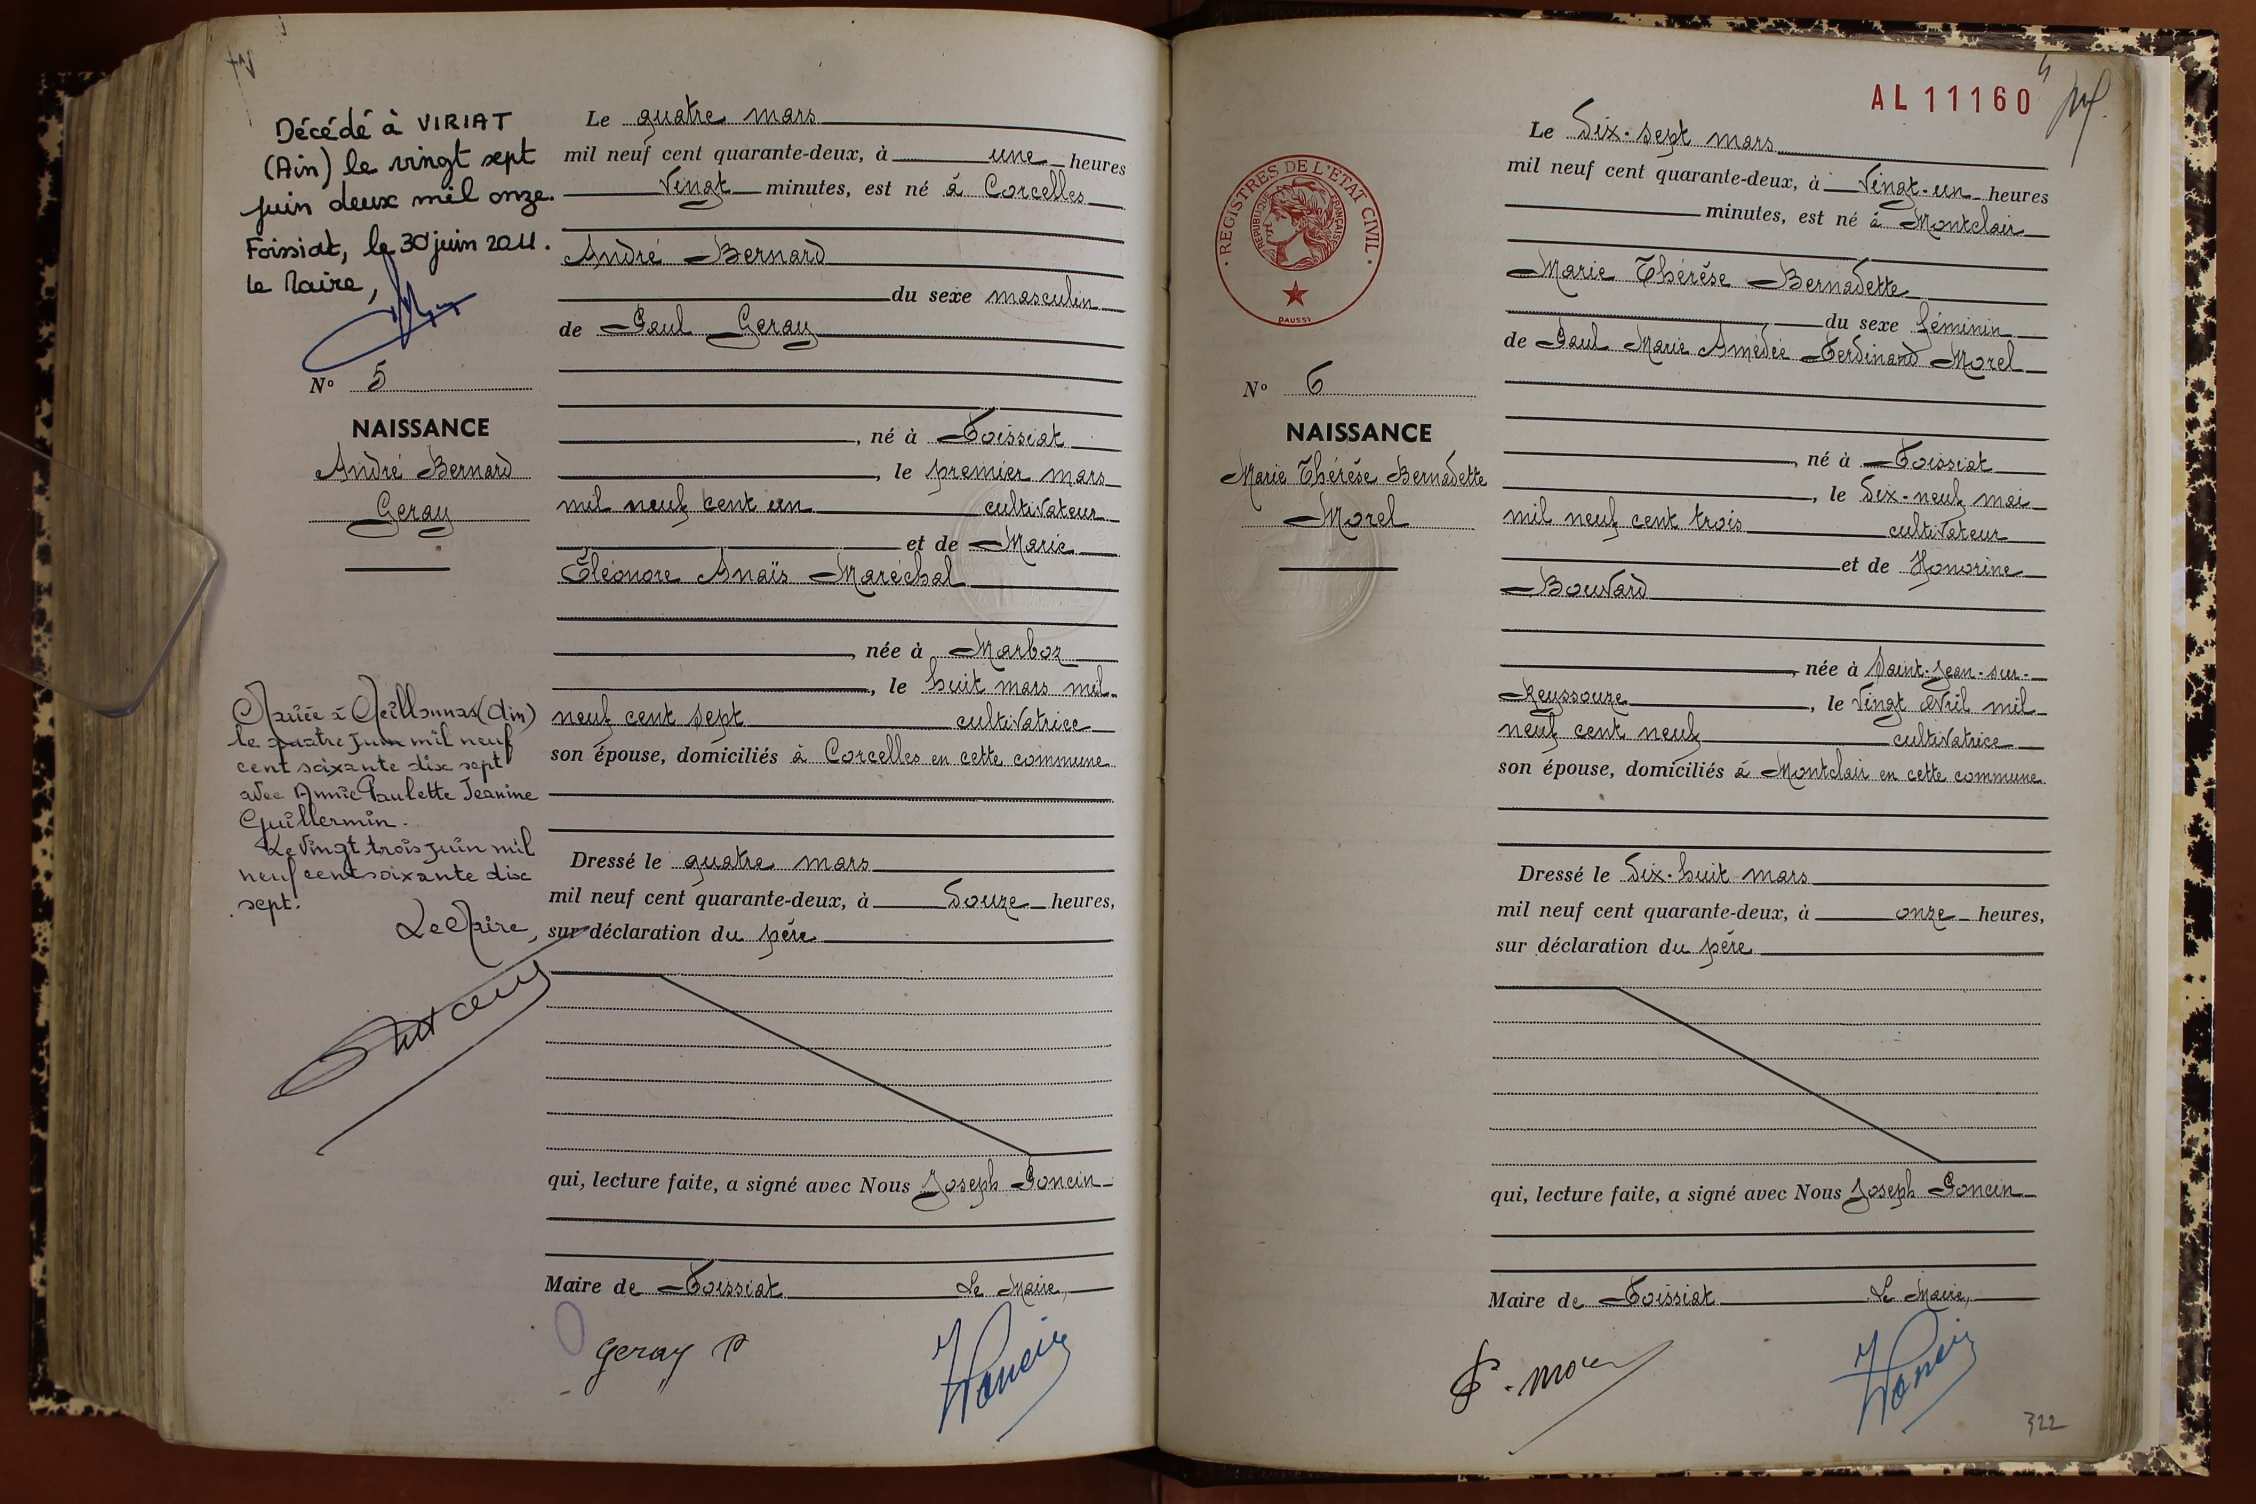 Décédé à VIRIAT
(Ain) le vingt sept
juin deux mil onze.
Foissiat, le 30 juin 2011.
Le Maire,
N° 5
NAISSANCE
André Bernard
Geray
Mariée à Meillonnas (Ain)
le quatre juin mil neuf
cent soixante dix sept
avec Annie Paulette Jeanine
Guillermin.
Le vingt trois juin mil
neuf cent soixante dix
sept.
Le Maire,
Le quatre mars
mil neuf cent quarante-deux, à une heures
vingt minutes, est né à Corcelles
André Bernard
du sexe masculin
de Paul Geray
, né à Foissiat
, le premier mars
mil neuf cent un cultivateur
et de Marie
Eléonore Anaïs Maréchal
, née à Marboz
, le huit mars mil
neuf cent sept cultivatrice
son épouse, domiciliés à Corcelles en cette commune
Dressé le quatre mars
mil neuf cent quarante-deux, à douze heures,
sur déclaration du père
qui, lecture faite, a signé avec Nous Joseph Poncin
Maire de Foissiat Le Maire,
Geray P
J Poncin
AL 11160
REGISTRES DE L'ÉTAT CIVIL
RÉPUBLIQUE FRANÇAISE
DAUSSY
N° 6
NAISSANCE
Marie Thérèse Bernadette
Morel
Le dix-sept mars
mil neuf cent quarante-deux, à vingt-un heures
minutes, est né à Montclair
Marie Thérèse Bernadette
du sexe féminin
de Paul Marie Amédée Ferdinand Morel
, né à Foissiat
, le dix-neuf mai
mil neuf cent trois cultivateur
et de Honorine
Bouvard
, née à Saint-Jean-sur-
Reyssouze, le vingt avril mil
neuf cent neuf cultivatrice
son épouse, domiciliés à Montclair en cette commune
Dressé le dix-huit mars
mil neuf cent quarante-deux, à onze heures,
sur déclaration du père
qui, lecture faite, a signé avec Nous Joseph Poncin
Maire de Foissiat Le Maire,
P. Morel
J Poncin
322